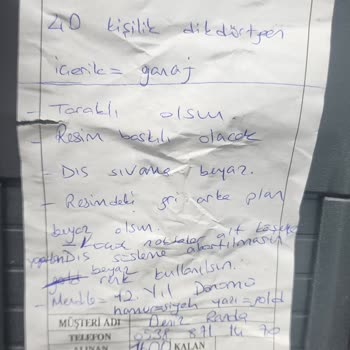 40 kişilik dikdörtgen
içerik = ganaj
- Taraklı olsun.
- Resim baskılı olacak
- Dış sıvama beyaz.
- Resimdeki gri arka plan
beyaz olsun.
noktalar alt köşeye
Dış süsleme abartılmasın
beyaz renk kullanılsın.
- 12. Yıl Dönümü
siyah yazı = gold
MÜŞTERİ ADI Deniz
TELEFON 0538 871 14 70
ALINAN 1600 KALAN